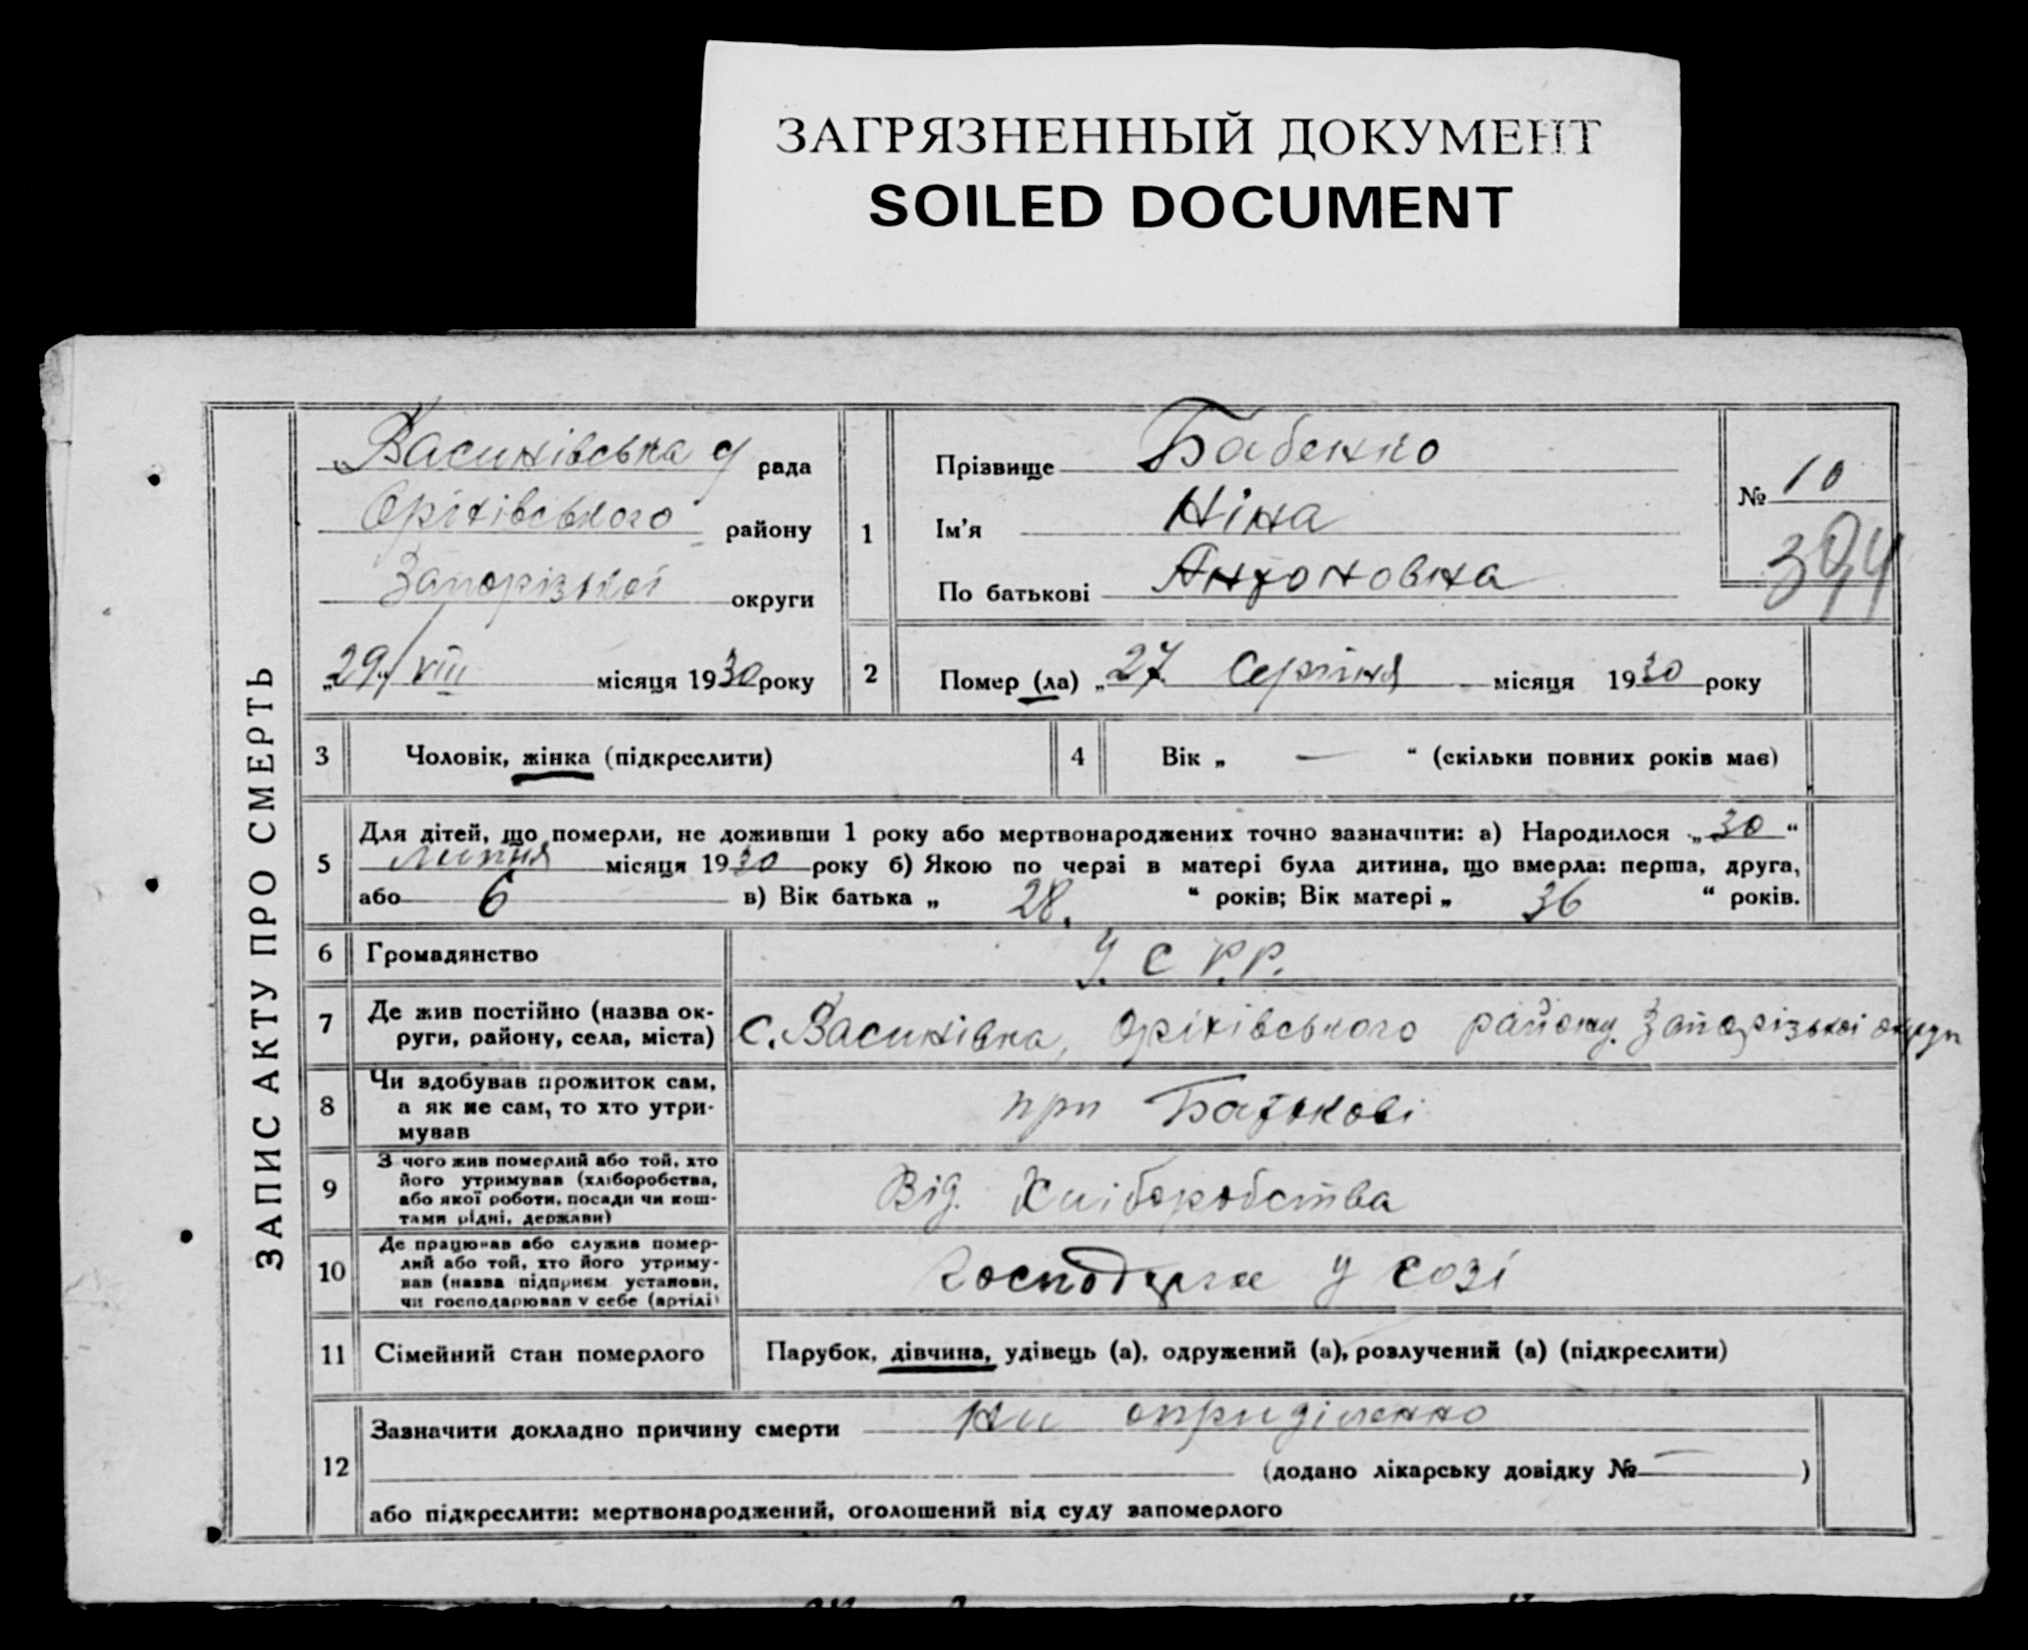 ЗАГРЯЗНЕННЫЙ ДОКУМЕНТ
SOILED DOCUMENT
ЗАПИС АКТУ ПРО СМЕРТЬ
Василівська с/ рада
Оріхівського району
Запорізької округи
„29“/VIII місяця 1930 року
1
Прізвище Бабенко
Ім’я Ніна
По батькові Антоновна
№ 10
394
2 Помер (ла) „27 Серпня місяця 1930 року
3 Чоловік, жінка (підкреслити)
4 Вік „ — “ (скільки повних років має)
5 Для дітей, що померли, не доживши 1 року або мертвонароджених точно зазначити: а) Народилося „30“
липня місяця 1930 року б) Якою по черзі в матері була дитина, що вмерла: перша, друга,
або 6 в) Вік батька „ 28. “ років; Вік матері „ 36 “ років.
6 Громадянство У. С. Р. Р.
7 Де жив постійно (назва ок-
руги, району, села, міста) с. Василівка, Оріхівського району, Запорізької округи
8 Чи здобував прожиток сам,
а як не сам, то хто утри-
мував
при Батькові
9 З чого жив померлий або той, хто
його утримував (хліборобства,
або якої роботи, посади чи кош-
тами рідні, держави)
Від. Хліборобства
10 Де працював або служив помер-
лий або той, хто його утриму-
вав (назва підприєм установи,
чи господарював у себе (артілі)
у созі
11 Сімейний стан померлого Парубок, дівчина, удівець (а), одружений (а), розлучений (а) (підкреслити)
12 Зазначити докладно причину смерти Ни оприділенно
(додано лікарську довідку № — )
або підкреслити: мертвонароджений, оголошений від суду запомерлого